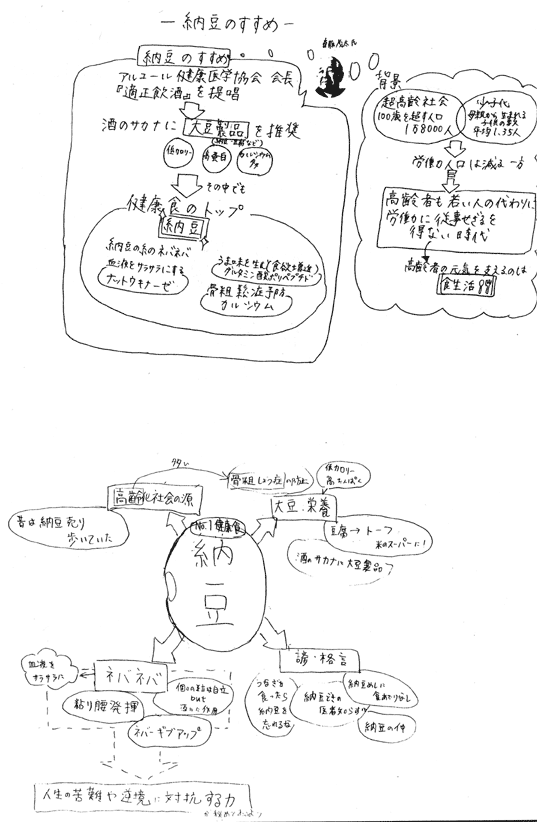 ― 納豆のすすめ ―
納豆のすすめ
アルコール健康医学協会 会長
『適正飲酒』を提唱
酒のサカナに 大豆製品 を推奨
低カロリー
高蛋白
その中でも
健康食のトップ
納豆
納豆の糸のネバネバ
血液をサラサラにする
ナットウキナーゼ
うま味を生む(食欲増進)
グルタミン酸ポリペプチド
骨粗鬆症予防
カルシウム
背景
超高齢社会
100歳を超す人口
1万8000人
少子化
母親から生まれる
子供の数
平均1.35人
労働力人口は減る一方
高齢者も若い人の代わりに
労働力に従事せざるを
得ない時代
高齢者の元気を支えるのは
食生活
高齢化社会の源
多い
骨粗しょう症の防止
低カロリー
高たんぱく
昔は納豆売り
歩いていた
No.1 健康食
大豆・栄養
豆腐→トーフ
米のスーパーに!
酒のサカナに大豆製品
納
豆
血液を
サラサラに
ネバネバ
粘り腰発揮
個々の粒は自立
but
ネバーギブアップ
諺・格言
うなぎを
食ったら
納豆を
忘れるな
納豆どきの
医者知らず
納豆めしに
食あたりなし
納豆の仲
人生の苦難や逆境に対抗する力